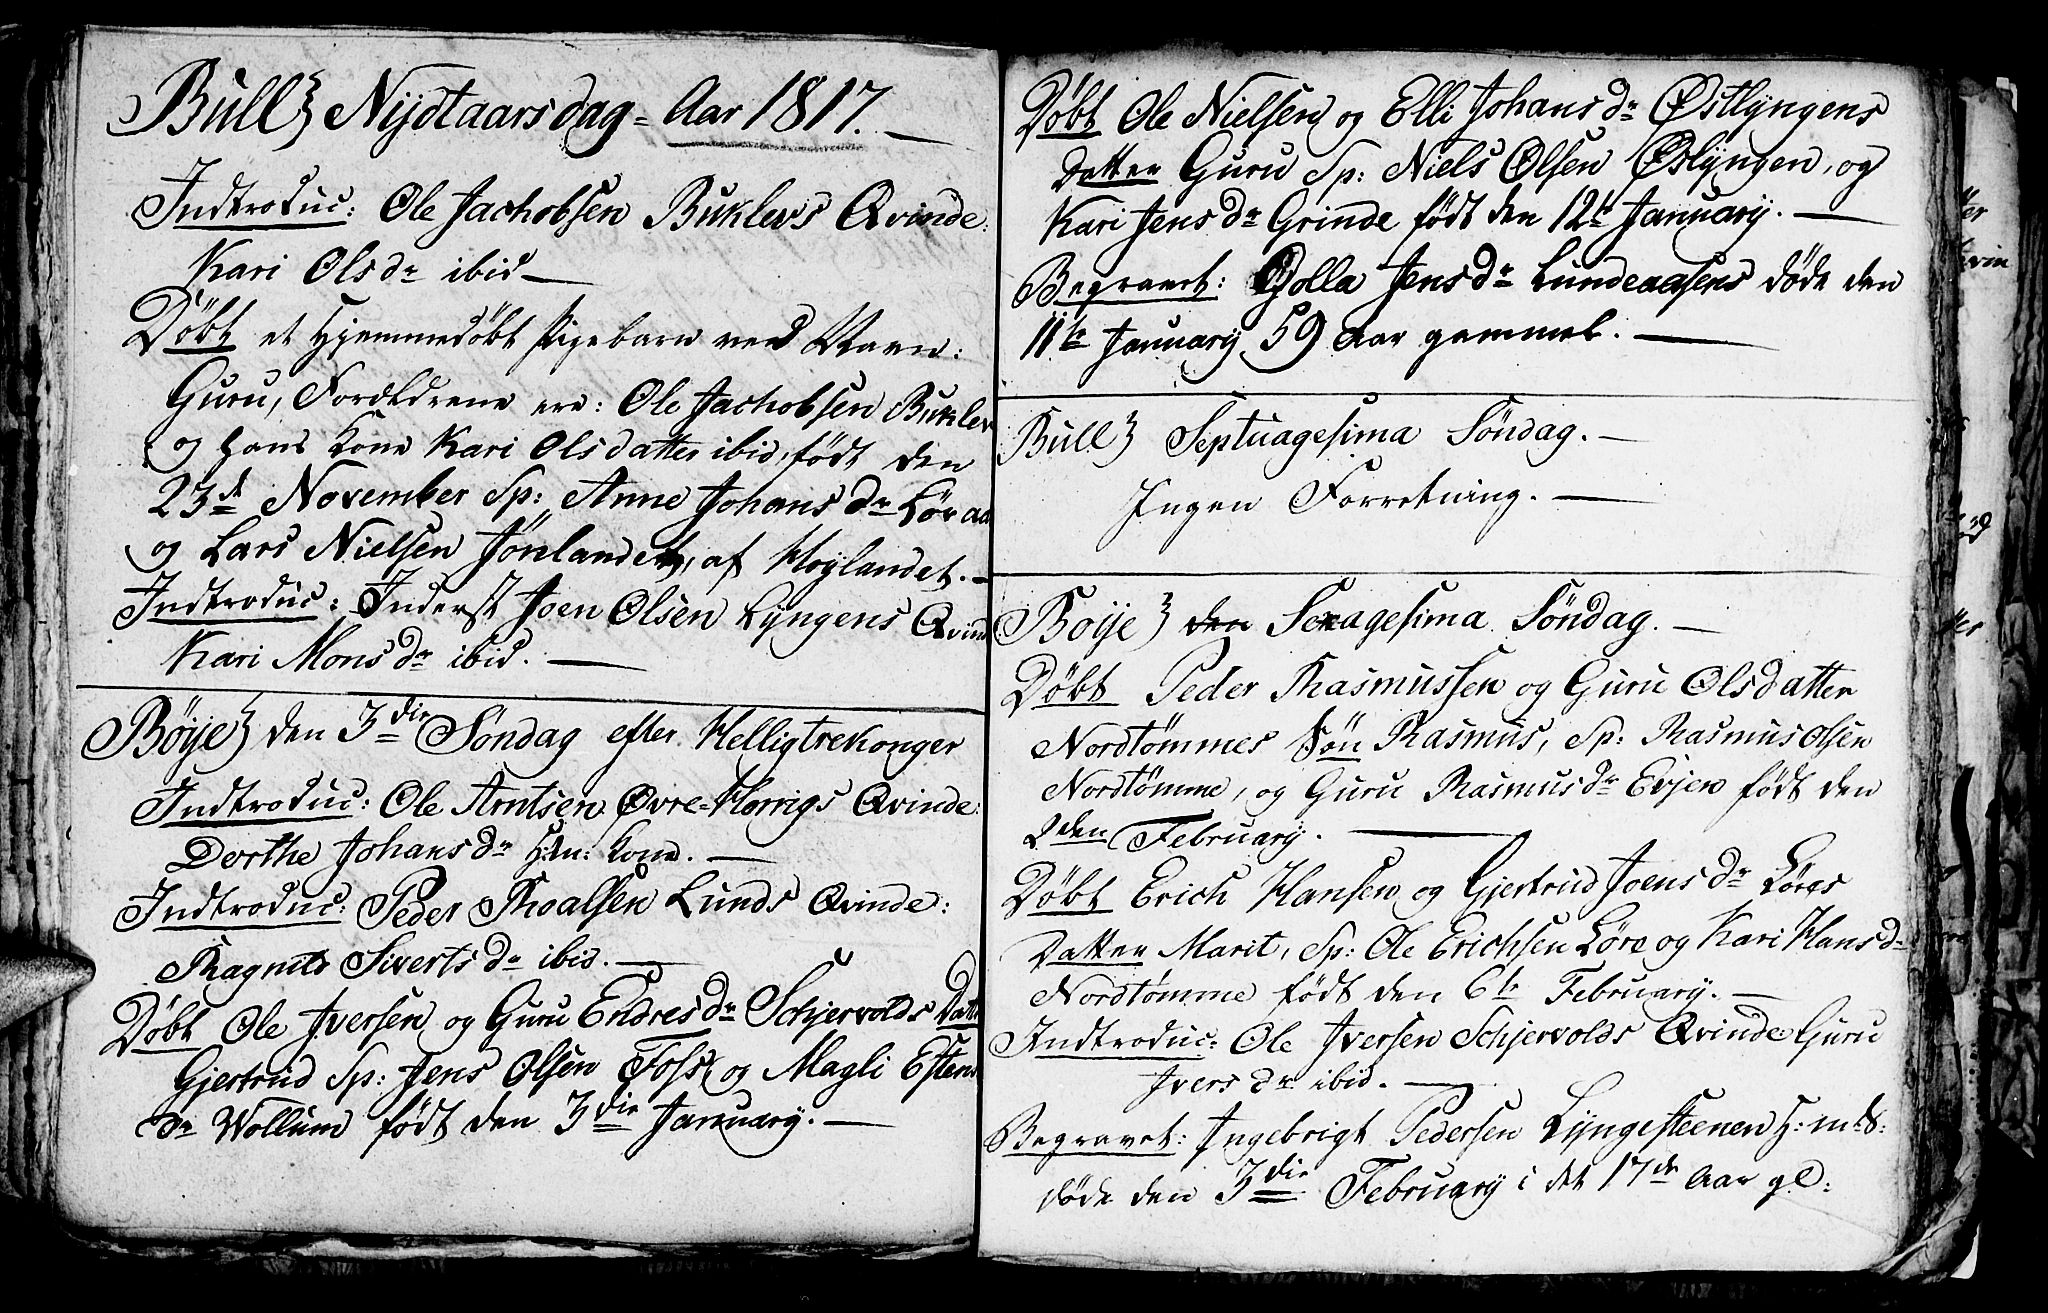 Bull} Nijdtaarsdag = Aar 1817. —
Indtroduc: Ole Jachobsen Buklevs Qvinde:
Kari Olsdr ibid —
Döbt et Hjemmedöbt Pigebarn ved Navn:
Guru, Forældrene ere: Ole Jachobsen Buklev
og hans Kone Kari Olsdatter ibid, födt den
23de November Sp: Anne Johansdr Löraa
og Lars Nielsen Jönlandet, af Höylandet. —
Indtroduc: Inderst Joen Olsen Lyngens Qvind
Kari Monsdr ibid. —
Böije} den 3die Söndag efter Helligtrekonger
Indtroduc: Ole Arntsen Övre-Horrigs Qvinde:
Dorthe Johansdr H:en: Kone. —
Indtroduc: Peder Thoalsen Lunds Qvinde:
Ragnild Sivertsdr ibid. —
Döbt Ole Iversen og Guru Endresdr Schjervolds Datt
Gjertrud Sp: Jens Olsen Foss og Magli Estens
dr Wollum födt den 3die Januarij. —
Döbt Ole Nielsen og Elli Johansdr Östlyngens
Datter Guru Sp: Niels Olsen Östlyngen, og
Kari Jensdr Grinde födt den 12te Januarij. —
Begravet: Golla Jensdr Lundeaasens döde den
11te Januarij 59 Aar gammel. —
Bull} Septuagesima Söndag. —
Ingen Forretning. —
Böije} den Sexagesima Söndag. —
Döbt Peder Rasmussen og Guru Olsdatter
Nordtömmes Sön Rasmus, Sp: Rasmus Olsen
Nordtömme, og Guru Rasmusdr Evjen födt den
2den Februarij. —
Döbt Erich Hansen og Gjertrud Joensdr Löres
Datter Marit, Sp: Ole Erichsen Löre og Kari Hansdr
Nordtömme födt den 6te Februarij. —
Indtroduc: Ole Iversen Schjervolds Qvinde: Guru
Iversdr ibid. —
Begravet: Ingebrigt Pedersen Lyngesteenen H:mds:
döde den 3die Februarij i det 17de Aar gl: